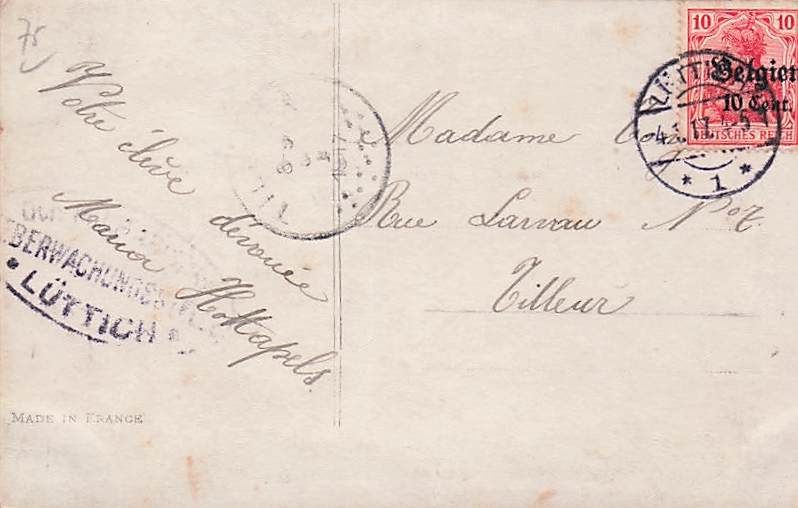 75
Votre élève dévouée
Maria Hottapels.
ÜBERWACHUNGSSTELLE
* LÜTTICH *
MADE IN FRANCE
Madame
Rue Larvau No 7
Tilleur
10 10
Belgien
10 Cent.
DEUTSCHES REICH
LÜTTICH
* 1 *